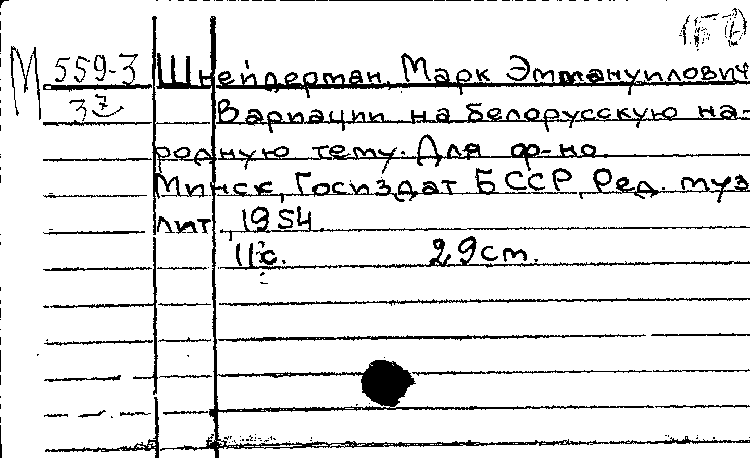 М 559-3 Шнейдерман, Марк Эммануилович
37 Вариации на белорусскую на-
родную тему. Для ф-но.
Минск, Госиздат БССР, Ред. муз
лит., 1954.
11 с. 29 см.